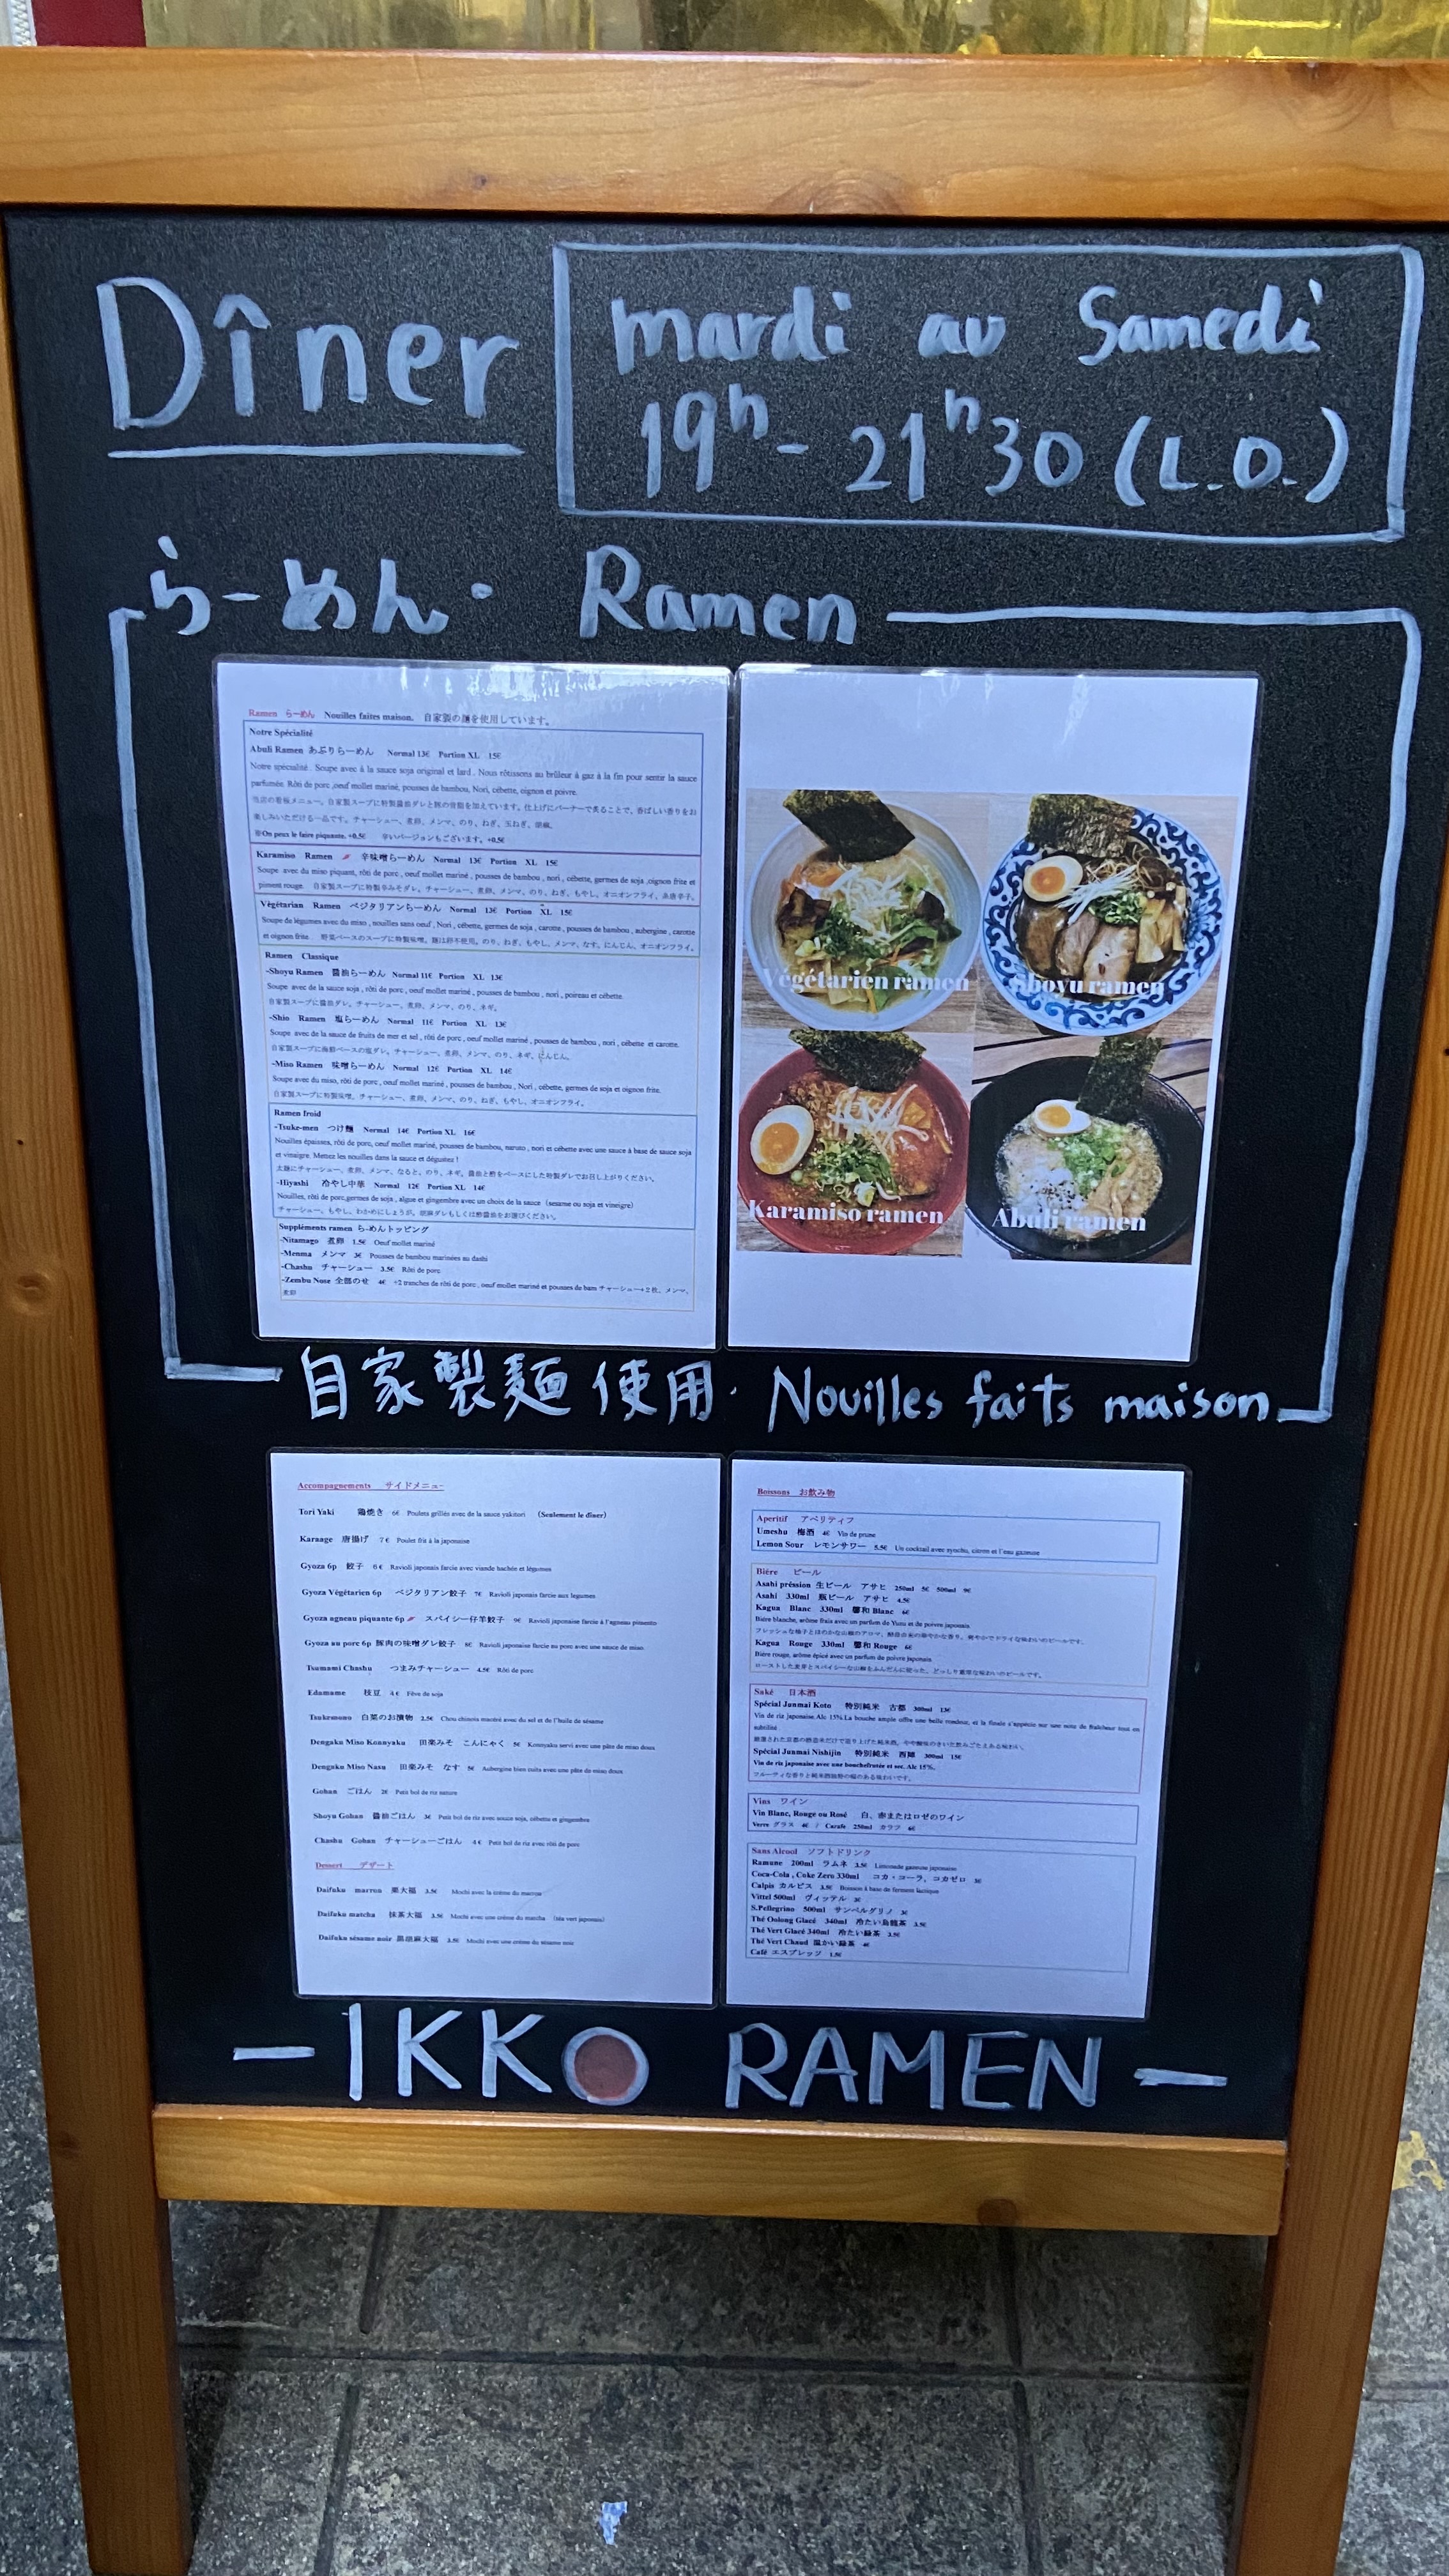 Dîner
mardi au Samedi
19h - 21h30 (L.O.)
らーめん・ Ramen
Ramen らーめん Nouilles faites maison. 自家製の麺を使用しています。
Notre Spécialité
Abuli Ramen あぶりらーめん Normal 13€ Portion XL 15€
Notre spécialité . Soupe avec à la sauce soja original et lard . Nous rôtissons au brûleur à gaz à la fin pour sentir la sauce
parfumée. Rôti de porc ,oeuf mollet mariné, pousses de bambou, Nori, cébette, oignon et poivre.
当店の看板メニュー。自家製スープに特製醤油ダレと豚の背脂を加えています。仕上げにバーナーで炙ることで、香ばしい香りをお
楽しみいただける一品です。チャーシュー、煮卵、メンマ、のり、ねぎ、玉ねぎ、胡椒。
※On peux le faire piquante. +0.5€ 辛いバージョンもございます。+0.5€
Karamiso Ramen 辛味噌らーめん Normal 13€ Portion XL 15€
Soupe avec du miso piquant, rôti de porc , oeuf mollet mariné , pousses de bambou , nori , cébette, germes de soja ,oignon frite et
piment rouge. 自家製スープに特製辛みそダレ。チャーシュー、煮卵、メンマ、のり、ねぎ、もやし、オニオンフライ、糸唐辛子。
Végétarian Ramen ベジタリアンらーめん Normal 13€ Portion XL 15€
Soupe de légumes avec du miso , nouilles sans oeuf , Nori , cébette, germes de soja , carotte , pousses de bambou , aubergine , carotte
et oignon frite. 野菜ベースのスープに特製味噌。麺は卵不使用。のり、ねぎ、もやし、メンマ、なす、にんじん、オニオンフライ。
Ramen Classique
-Shoyu Ramen 醤油らーめん Normal 11€ Portion XL 13€
Soupe avec de la sauce soja , rôti de porc , oeuf mollet mariné , pousses de bambou , nori , poireau et cébette.
自家製スープに醤油ダレ。チャーシュー、煮卵、メンマ、のり、ネギ。
-Shio Ramen 塩らーめん Normal 11€ Portion XL 13€
Soupe avec de la sauce de fruits de mer et sel , rôti de porc , oeuf mollet mariné , pousses de bambou , nori , cébette et carotte.
自家製スープに海鮮ベースの塩ダレ。チャーシュー、煮卵、メンマ、のり、ネギ、にんじん。
-Miso Ramen 味噌らーめん Normal 12€ Portion XL 14€
Soupe avec du miso, rôti de porc , oeuf mollet mariné , pousses de bambou , Nori , cébette, germes de soja et oignon frite.
自家製スープに特製味噌。チャーシュー、煮卵、メンマ、のり、ねぎ、もやし、オニオンフライ。
Ramen froid
-Tsuke-men つけ麺 Normal 14€ Portion XL 16€
Nouilles épaisses, rôti de porc, oeuf mollet mariné, pousses de bambou, naruto , nori et cébette avec une sauce à base de sauce soja
et vinaigre. Mettez les nouilles dans la sauce et dégustez !
太麺にチャーシュー、煮卵、メンマ、なると、のり、ネギ。醤油と酢をベースにした特製ダレでお召し上がりください。
-Hiyashi 冷やし中華 Normal 12€ Portion XL 14€
Nouilles, rôti de porc,germes de soja , algue et gingembre avec un choix de la sauce (sesame ou soja et vineigre)
チャーシュー、もやし、わかめにしょうが。胡麻ダレもしくは酢醤油をお選びください。
Suppléments ramen らーめんトッピング
-Nitamago 煮卵 1.5€ Oeuf mollet mariné
-Menma メンマ 3€ Pousses de bambou marinées au dashi
-Chashu チャーシュー 3.5€ Rôti de porc
-Zembu Nose 全部のせ 4€ +2 tranches de rôti de porc , oeuf mollet mariné et pousses de bam チャーシュー+2枚、メンマ、
煮卵
Végétarien ramen
Shoyu ramen
Karamiso ramen
Abuli ramen
自家製麺使用・Nouilles faits maison
Accompagnements サイドメニュー
Tori Yaki 鶏焼き 6€ Poulets grillés avec de la sauce yakitori (Seulement le dîner)
Karaage 唐揚げ 7€ Poulet frit à la japonaise
Gyoza 6p 餃子 6€ Ravioli japonais farcie avec viande hachée et légumes
Gyoza Végétarien 6p ベジタリアン餃子 7€ Ravioli japonais farcie aux legumes
Gyoza agneau piquante 6p スパイシー仔羊餃子 9€ Ravioli japonaise farcie à l'agneau pimento
Gyoza au porc 6p 豚肉の味噌ダレ餃子 8€ Ravioli japonaise farcie au porc avec une sauce de miso
Tsumami Chashu つまみチャーシュー 4.5€ Rôti de porc
Edamame 枝豆 4€ Fève de soja
Tsukemono 白菜のお漬物 2.5€ Chou chinois mariné avec du sel et de l'huile de sésame
Dengaku Miso Konnyaku 田楽みそ こんにゃく 5€ Konnyaku servi avec une pâte de miso doux
Dengaku Miso Nasu 田楽みそ なす 5€ Aubergine bien cuite avec une pâte de miso doux
Gohan ごはん 2€ Petit bol de riz nature
Shoyu Gohan 醤油ごはん 3€ Petit bol de riz avec sauce soja, cébette et gingembre
Chashu Gohan チャーシューごはん 4€ Petit bol de riz avec rôti de porc
Dessert デザート
Daifuku marron 栗大福 3.5€ Mochi avec la crème du marron
Daifuku matcha 抹茶大福 3.5€ Mochi avec une crème du matcha (téa vert japonais)
Daifuku sésame noir 黒胡麻大福 3.5€ Mochi avec une crème du sésame noir
Boissons お飲み物
Aperitif アペリティフ
Umeshu 梅酒 4€ Vin de prune
Lemon Sour レモンサワー 5.5€ Un cocktail avec syochu, citron et l'eau gazeuse
Bière ビール
Asahi préssion 生ビール アサヒ 250ml 5€ 500ml 9€
Asahi 330ml 瓶ビール アサヒ 4.5€
Kagua Blanc 330ml 馨和 Blanc 6€
Bière blanche, arôme frais avec un parfum de Yuzu et de poivre japonais
Kagua Rouge 330ml 馨和 Rouge 6€
Bière rouge, arôme épicé avec un parfum de poivre japonais
Saké 日本酒
Spécial Junmai Koto 特別純米 古都 300ml 13€
Vin de riz japonaise.Alc 15%.La bouche ample offre une belle rondeur, et la finale s'appécie sur une note de fraîcheur tout en
subtilité.
Spécial Junmai Nishijin 特別純米 西陣 300ml 15€
Vin de riz japonaise avec une bouchefruitée et sec. Alc 15%.
Vins ワイン
Vin Blanc, Rouge ou Rosé 白、赤またはロゼのワイン
Verre グラス 4€ / Carafe 250ml カラフ 6€
Sans Alcool ソフトドリンク
Ramune 200ml ラムネ 3.5€ Limonade gazeuse japonaise
Coca-Cola , Coke Zero 330ml コカ・コーラ、コカゼロ 3€
Calpis カルピス 3.5€ Boisson à base de ferment lactique
Vittel 500ml ヴィッテル 3€
S.Pellegrino 500ml サンペルグリノ 3€
Thé Oolong Glacé 340ml 冷たい烏龍茶 3.5€
Thé Vert Glacé 340ml 冷たい緑茶 3.5€
Thé Vert Chaud 温かい緑茶 4€
Café エスプレッソ 1.5€
- IKKO RAMEN -